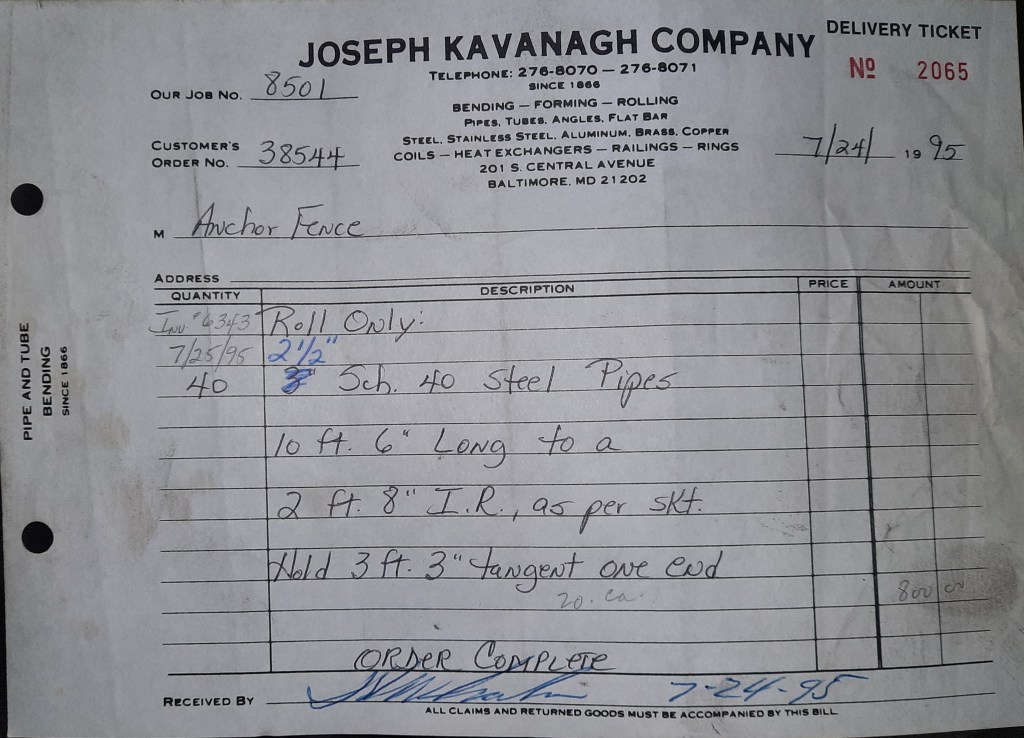 DELIVERY TICKET
JOSEPH KAVANAGH COMPANY
Nº 2065
TELEPHONE: 276-8070 — 276-8071
SINCE 1866
OUR JOB NO. 8501
BENDING — FORMING — ROLLING
PIPES, TUBES, ANGLES, FLAT BAR
STEEL, STAINLESS STEEL, ALUMINUM, BRASS, COPPER
CUSTOMER'S
ORDER NO. 38544
COILS — HEAT EXCHANGERS — RAILINGS — RINGS
7/24/ 19 95
201 S. CENTRAL AVENUE
BALTIMORE, MD 21202
M Anchor Fence
ADDRESS
QUANTITY DESCRIPTION PRICE AMOUNT
Inv # 6343 Roll Only:
7/25/95 2 1/2"
40 Sch. 40 Steel Pipes
10 ft. 6" Long to a
2 ft. 8" I.R., as per skt.
Hold 3 ft. 3" tangent one end
20. ea. 800 00
ORDER COMPLETE
RECEIVED BY 7-24-95
ALL CLAIMS AND RETURNED GOODS MUST BE ACCOMPANIED BY THIS BILL
PIPE AND TUBE
BENDING
SINCE 1866